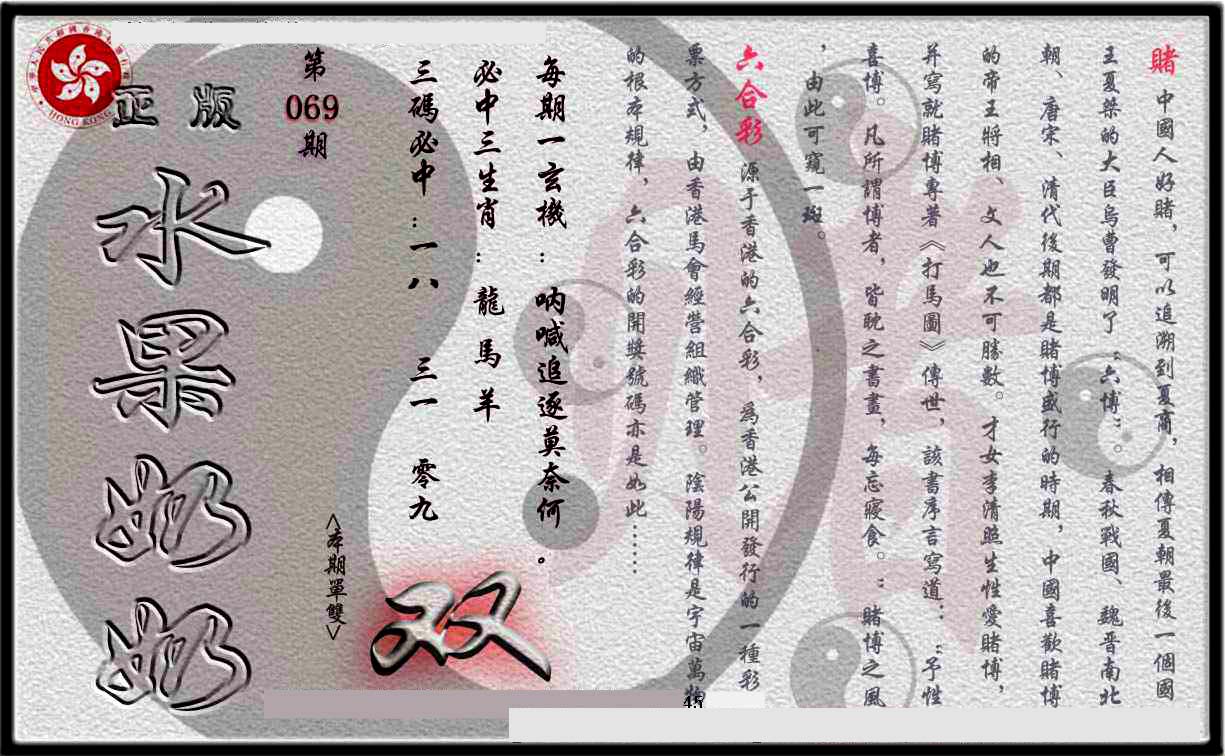 賭 中國人好賭，可以追溯到夏商，相傳夏朝最後一個國
王夏桀的大臣烏曹發明了“六博”。春秋戰國、魏晋南北
朝、唐宋、清代後期都是賭博盛行的時期，中國喜歡賭博
的帝王將相、文人也不可勝數。才女李清照生性愛賭博，
并寫就賭博專著《打馬圖》傳世，該書序言寫道：“予性
喜博。凡所謂博者，皆耽之書畫，每忘寢食。”賭博之風
，由此可窺一斑。
六合彩 源于香港的六合彩，爲香港公開發行的一種彩
票方式，由香港馬會經營組織管理。陰陽規律是宇宙萬物
的根本規律，六合彩的開獎號碼亦是如此……
每期一玄機：吶喊追逐莫奈何。
必中三生肖：龍 馬 羊
三碼必中：一八 三一 零九
双
<本期單雙>
第
069
期
正版
水果奶奶
HONG KONG
45